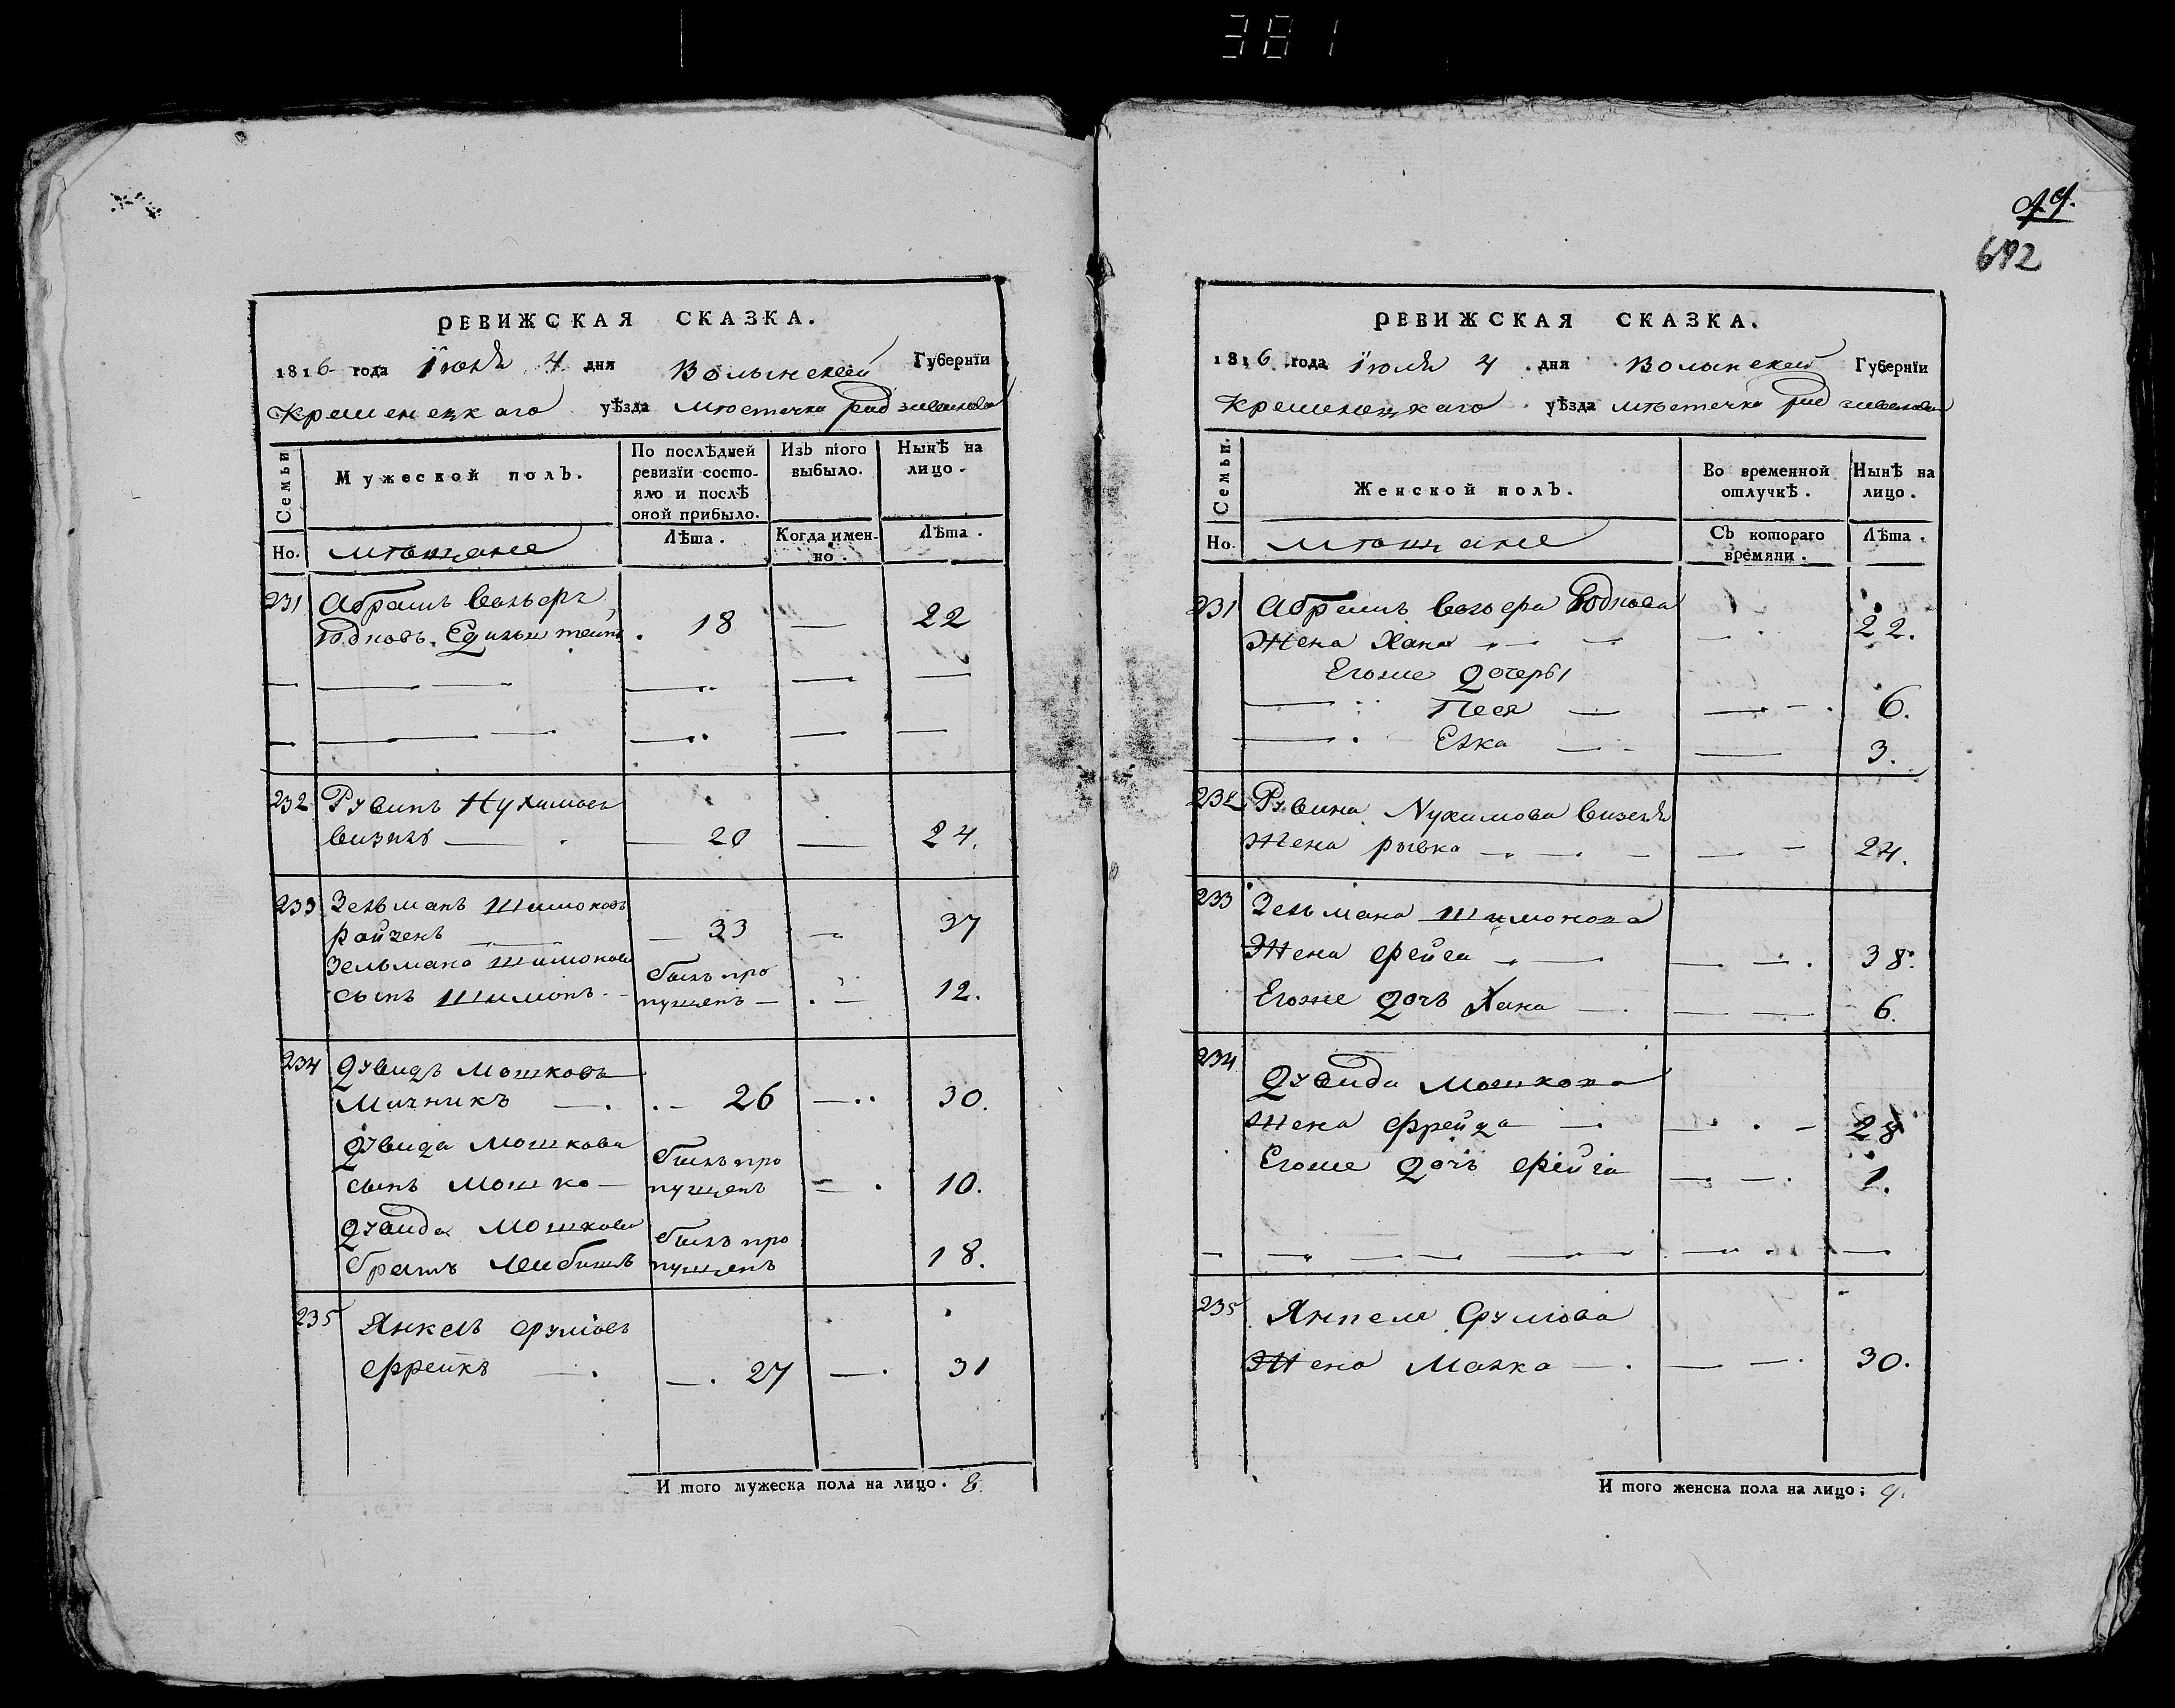 381
РЕВИЖСКАЯ СКАЗКА.
1816 года Іюля 4 дня Волынской Губернїи
Кременецкаго уѣзда мѣстечка радзивилова
Семьи
Мужеской полъ.
По послѣдней ревизїи состояло и послѣ оной прибыло.
Изъ того выбыло.
Нынѣ на лицо.
Но. мѣщане
Лѣта.
Когда именно.
Лѣта.
231 Абрамъ
18 — 22
232 Рувинъ Нухимовъ
— 20 — 24.
233 Зельманъ Шимоновъ
— 33 — 37
Зельмана Шимонова былъ про
сынъ Шимонъ - пущенъ — 12.
234 Дувидъ Мошковъ
Мичникъ — 26 — 30.
Дувида Мошкова былъ про
сынъ Мошко — пущенъ — 10.
Дувида Мошкова былъ про
братъ Лейбишъ пущенъ 18.
235 Янкель Срулiовъ
— 27 — 31
И того мужеска пола на лицо. 8.
692
РЕВИЖСКАЯ СКАЗКА.
1816 года Іюля 4 дня Волынской Губернїи
Кременецкаго уѣзда мѣстечка радзивилова
Семьи.
Женской полъ.
Во временной отлучкѣ.
Нынѣ на лицо.
Но. мѣщане
Съ котораго времяни.
Лѣта.
231 Абрама
Жена Хана — 22.
Егоже дочеры
— Песя — 6.
— Елка — 3.
232 Рувина Нухимова
Жена рывка — 24.
233 Зельмана Шимонова
Жена фейга — 38.
Егоже дочь Хана — 6.
234 Дувида Мошкова
Жена фрейда — 28
Егоже дочь фейга — 1.
235 Янкеля Срулiова
Жена Малка — 30.
И того женска пола на лицо: 9.